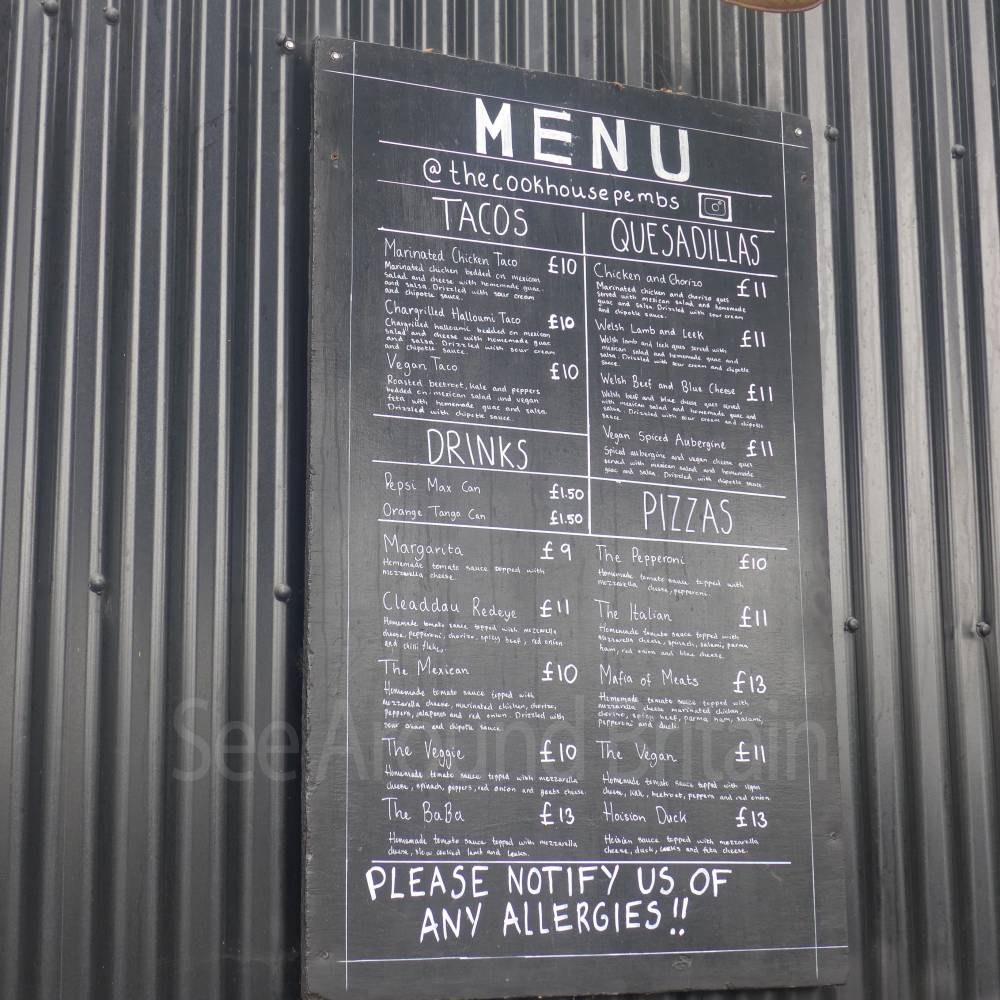 MENU
@thecookhousepembs
TACOS
Marinated Chicken Taco £10
Marinated chicken bedded on mexican
salad and cheese with homemade guac
and salsa. Drizzled with sour cream
and chipotle sauce.
Chargrilled Halloumi Taco £10
Chargrilled halloumi bedded on mexican
salad and cheese with homemade guac
and salsa. Drizzled with sour cream
and chipotle sauce.
Vegan Taco £10
Roasted beetroot, kale and peppers
bedded on mexican salad and vegan
feta with homemade guac and salsa.
Drizzled with chipotle sauce.
DRINKS
Pepsi Max Can £1.50
Orange Tango Can £1.50
QUESADILLAS
Chicken and Chorizo £11
Marinated chicken and chorizo ques
served with mexican salad and homemade
guac and salsa. Drizzled with sour cream
and chipotle sauce.
Welsh Lamb and Leek £11
Welsh lamb and leek ques served with
mexican salad and homemade guac and
salsa. Drizzled with sour cream and chipotle
sauce.
Welsh Beef and Blue Cheese £11
Welsh beef and blue cheese ques served
with mexican salad and homemade guac and
salsa. Drizzled with sour cream and chipotle
sauce.
Vegan Spiced Aubergine £11
Spiced aubergine and vegan cheese ques
served with mexican salad and homemade
guac and salsa. Drizzled with chipotle sauce.
PIZZAS
Margarita £9
Homemade tomato sauce topped with
mozzarella cheese.
Cleaddau Redeye £11
Homemade tomato sauce topped with mozzarella
cheese, pepperoni, chorizo, spicy beef, red onion
and chilli flakes.
The Mexican £10
Homemade tomato sauce topped with
mozzarella cheese, marinated chicken, chorizo,
peppers, jalapenos and red onion. Drizzled with
sour cream and chipotle sauce.
The Veggie £10
Homemade tomato sauce topped with mozzarella
cheese, spinach, peppers, red onion and goats cheese.
The BaBa £13
Homemade tomato sauce topped with mozzarella
cheese, slow cooked lamb and leeks.
The Pepperoni £10
Homemade tomato sauce topped with
mozzarella cheese, pepperoni.
The Italian £11
Homemade tomato sauce topped with
mozzarella cheese, spinach, salami, parma
ham, red onion and blue cheese.
Mafia of Meats £13
Homemade tomato sauce topped with
mozzarella cheese marinated chicken,
chorizo, spicy beef, parma ham, salami,
pepperoni and duck.
The Vegan £11
Homemade tomato sauce topped with vegan
cheese, kale, beetroot, peppers and red onion
Hoision Duck £13
Hoisin sauce topped with mozzarella
cheese, duck, leeks and feta cheese.
PLEASE NOTIFY US OF
ANY ALLERGIES!!
See Around Britain